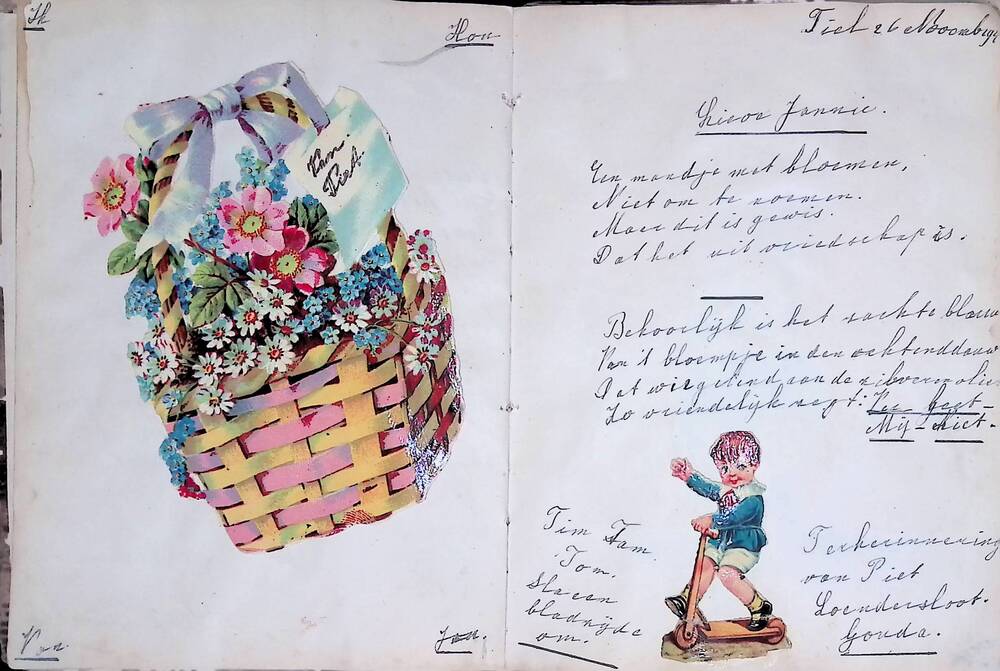 Ik
Hou
Van
Jou.
Van
Piet.
Tiel 26 Novemb 194
Lieve Jannie.
Een mandje met bloemen,
Niet om te noemen.
Maar dit is gewis.
Dat het uit vriedschap is.
Bekoorlijk is het zachte blauw
Van 't bloempje in den ochtenddauw
Dat wiegelend aan de zilvren
Zo vriendelijk zegt: Ver geet-
Mij - Niet.
Tim Tam
Tom.
Slaeen
bladzijde
om.
Ter herinnering
van Piet
Loendersloot.
Gouda.